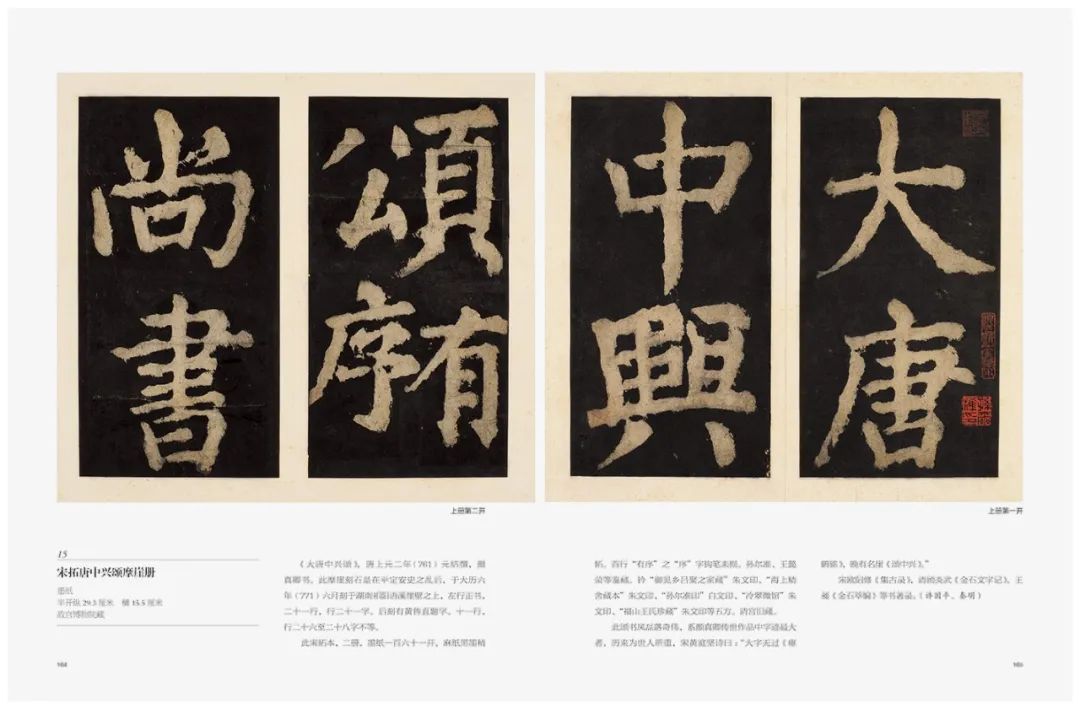 大唐
中興
頌
有序
尚書
上册第二开
上册第一开
15
宋拓唐中兴颂摩崖册
墨纸
半开纵 29.3 厘米 横 15.5 厘米
故宫博物院藏
《大唐中兴颂》，唐上元二年（761）元结撰，颜
真卿书。此摩崖刻石是在平定安史之乱后，于大历六
年（771）六月刻于湖南祁阳浯溪崖壁之上，左行正书，
二十一行，行二十一字。后刻有黄 题字，十一行，
行二十六至二十八字不等。
此宋拓本，二册，墨纸一百六十一开，麻纸黑墨精
拓。首行“有序”之“序”字钩笔未损。孙尔准、王懿
荣等鉴藏。钤 朱文印、“海上精
舍藏本”朱文印、“孙尔准印”白文印、 朱
文印、“福山王氏珍藏”朱文印等五方。清宫旧藏。
此颂书风磊落奇伟，系颜真卿传世作品中字迹最大
者，历来为世人所重，宋黄庭坚诗曰：“大字无过《瘗
鹤铭》，晚有名崖《颂中兴》。”
宋欧阳修《集古录》，清顾炎武《金石文字记》、王
昶《金石萃编》等书著录。（ 、秦明）
164
165